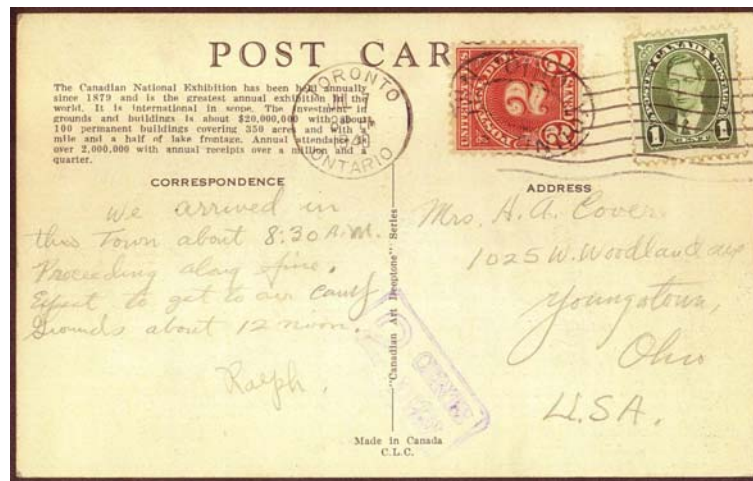 POST CAR
The Canadian National Exhibition has been held annually
since 1879 and is the greatest annual exhibition in the
world. It is international in scope. The investment in
grounds and buildings is about $20,000,000 with about
100 permanent buildings covering 350 acres and with a
mile and a half of lake frontage. Annual attendance is
over 2,000,000 with annual receipts over a million and a
quarter.
TORONTO
ONTARIO
UNITED STATES
POSTAGE DUE
2
CENTS
POSTES CANADA POSTAGE
1 CENT 1
CORRESPONDENCE
We arrived in
this Town about 8:30 A.M.
Proceeding along fine.
Expect to get to our camp
Grounds about 12 noon.
Ralph.
"Canadian Art Deeptone" Series
Made in Canada
C.L.C.
ADDRESS
Mrs. H. A. Cover
1025 W. Woodland ave
Youngstown,
Ohio
U.S.A.